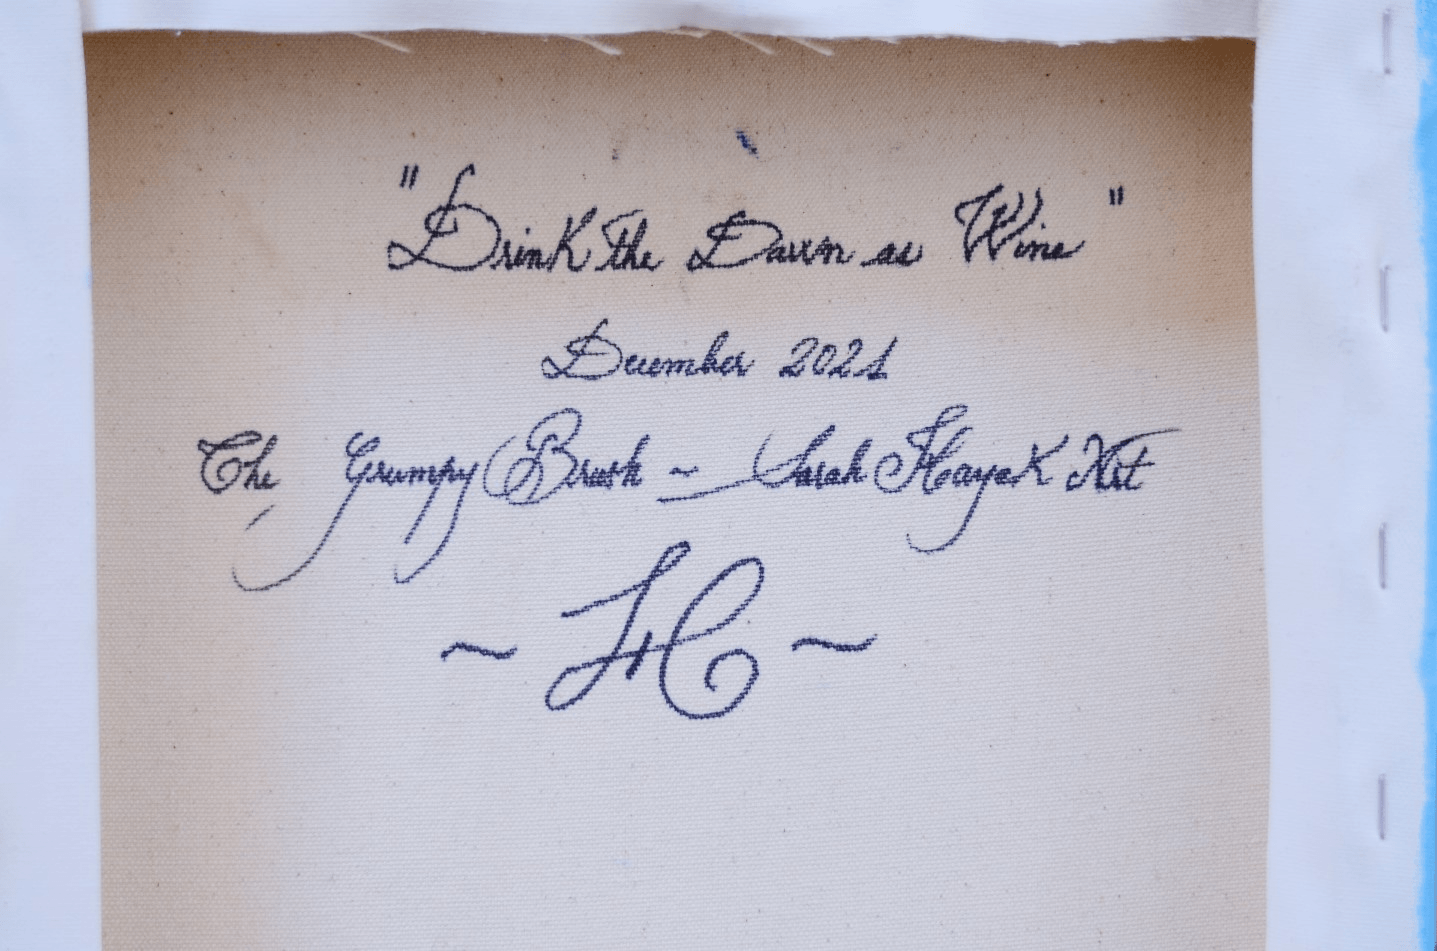 "Drink the Dawn as Wine"
December 2021
The Grumpy Brush ~ Sarah Hayek Art
~ ~